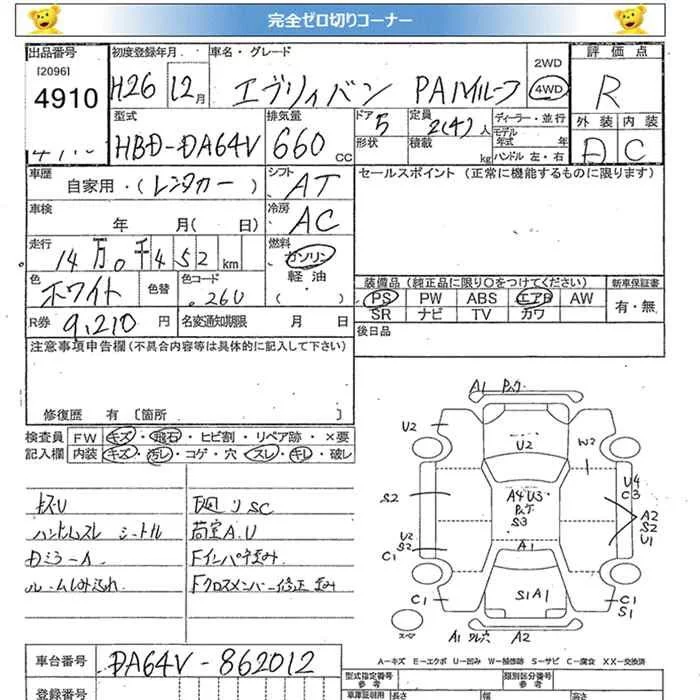 完全ゼロ切りコーナー
出品番号 初度登録年月 車名・グレード 2WD 4WD 評価点
[2096]
4910 H26 12月 エヴリィバン PAハイルーフ R
型式 排気量 ドア 定員 ディーラー・並行 外装 内装
HBD-DA64V 660 CC 5 2(4)人 モデル年式 年 D C
形状 積載 kg ハンドル 左・右
車歴 シフト セールスポイント (正常に機能するものに限ります)
自家用・(レンタカー) AT
車検 冷房
年 月( 日) AC
走行 燃料
14万0千452km ガソリン
色 色替 色コード 軽油 装備品 (純正品に限り○をつけてください) 新車保証書
ホワイト 26U ( ) PS PW ABS エアB AW 有・無
R券 9,210円 名変通知期限 月 日 SR ナビ TV カワ
注意事項申告欄(不具合内容等は具体的に記入して下さい) 後日品
修復歴 有 〔箇所
検査員 FW キズ・飛石・ヒビ割・リペア跡・×要
記入欄 内装 キズ・汚レ・コゲ・穴・スレ・キレ・破レ
キズU 凹リSC
ハンドルスレ シートル 荷室A.U
DミラーA Fインパネ歪み
ルーム内汚れ Fクロスメンバー修正歪み
A1
U2
U2
W2
S2
A4 U3
S3
U4
C3
A2
S2
U1
U2
S2
C1
A1
S1A1
C1
C1
S1
スペア
A1 A2
A-キズ E-エクボ U-凹み W-補修跡 S-サビ C-腐食 XX-交換済
車台番号 DA64V-862012
型式指定番号 類別区分番号
参考 参考
登録番号 車庫証明用 長さ 幅 高さ